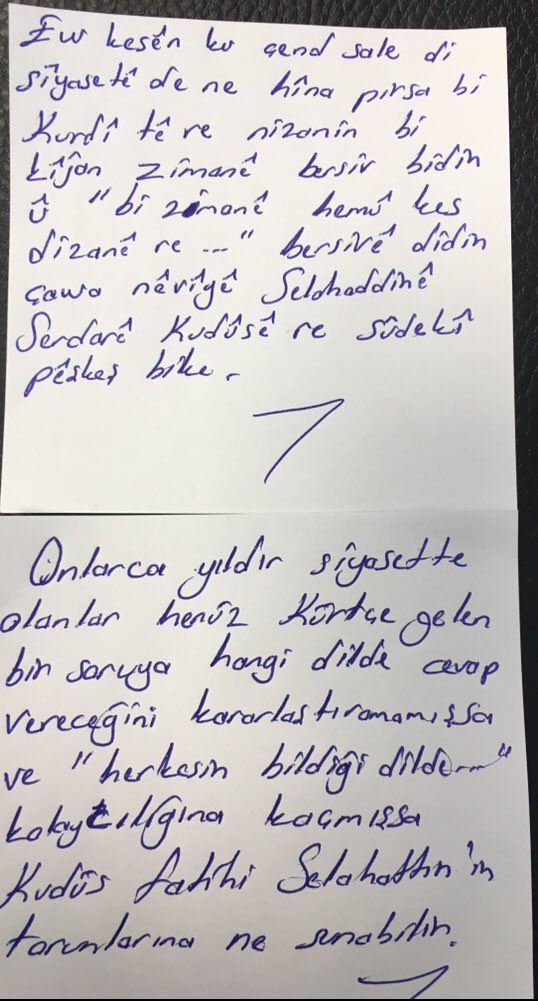 Ew kesên ku çend sale di
sîyasetê de ne hîna pirsa bi
Kurdî tê re nizanin bi
kîjan zimanê bersiv bidin
û "bi zimanê hemû kes
dizanê re ..." bersivê didin
çawa nêvîyê Selahaddinê
Serdarê Kudûsê re sûdekî
pêşkeş bike.
Onlarca yıldır siyasette
olanlar henüz Kürtçe gelen
bir soruya hangi dilde cevap
vereceğini kararlaştıramamışsa
ve "herkesin bildiği dilde..."
kolaycılığına kaçmışsa
Kudüs fatihi Selahattin'in
torunlarına ne sunabilir.